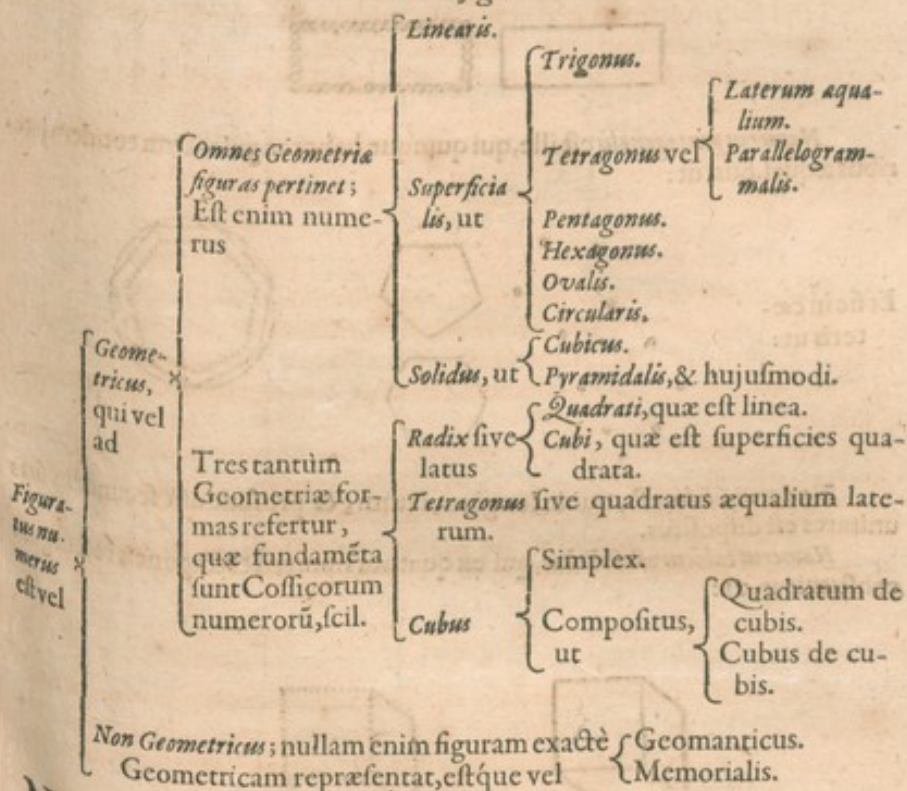 Figura-
tus nu-
merus
est vel
Geome-
tricus,
qui vel
ad
Omnes Geometriæ
figuras pertinet;
Est enim nume-
rus
Linearis.
Superficia
lis, ut
Trigonus.
Tetragonus vel
Laterum æqua-
lium.
Parallelogram-
malis.
Pentagonus.
Hexagonus.
Ovalis.
Circularis.
Solidus, ut
Cubicus.
Pyramidalis, & hujuſmodi.
Tres tantùm
Geometriæ for-
mas refertur,
quæ fundamẽta
ſunt Coſſicorum
numerorũ, ſcil.
Radix ſive
latus
Quadrati, quæ eſt linea.
Cubi, quæ est ſuperficies qua-
drata.
Tetragonus ſive quadratus æqualium late-
rum.
Cubus
Simplex.
Compoſitus,
ut
Quadratum de
cubis.
Cubus de cu-
bis.
Non Geometricus; nullam enim figuram exactè
Geometricam repræſentat, eſtq́ue vel
Geomanticus.
Memorialis.